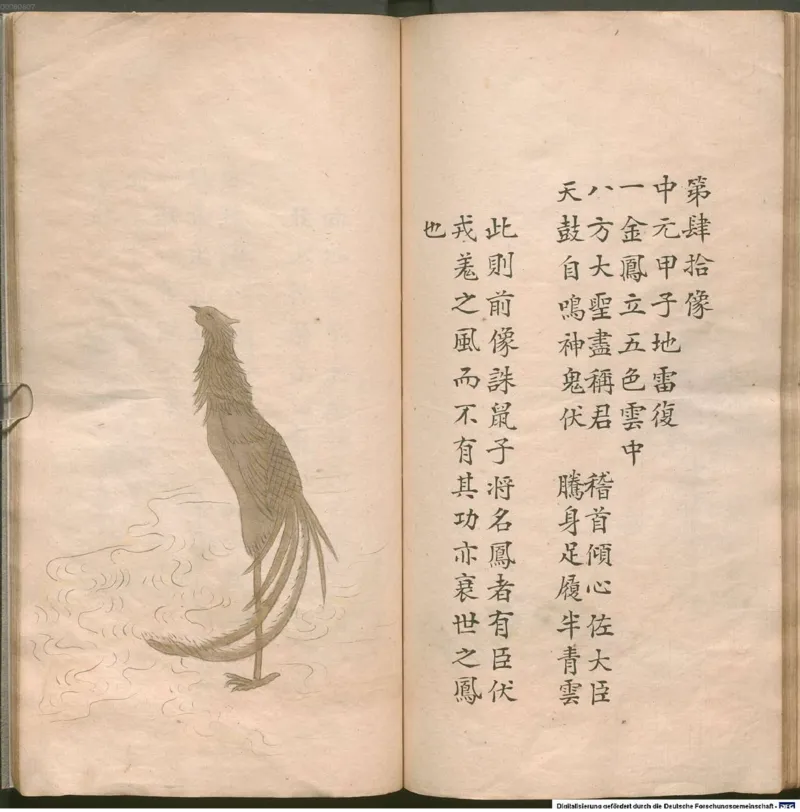 第肆拾像
中元甲子地雷復
一金鳳立五色雲中
八方大聖盡稱君 稽首傾心佐大臣
天鼓自鳴神鬼伏 騰身足履半青雲
此則前像誅鼠子将名鳳者有臣伏
戎羗之風而不有其功亦衰世之鳳
也
Digitalisierung gefördert durch die Deutsche Forschungsgemeinschaft - DFG